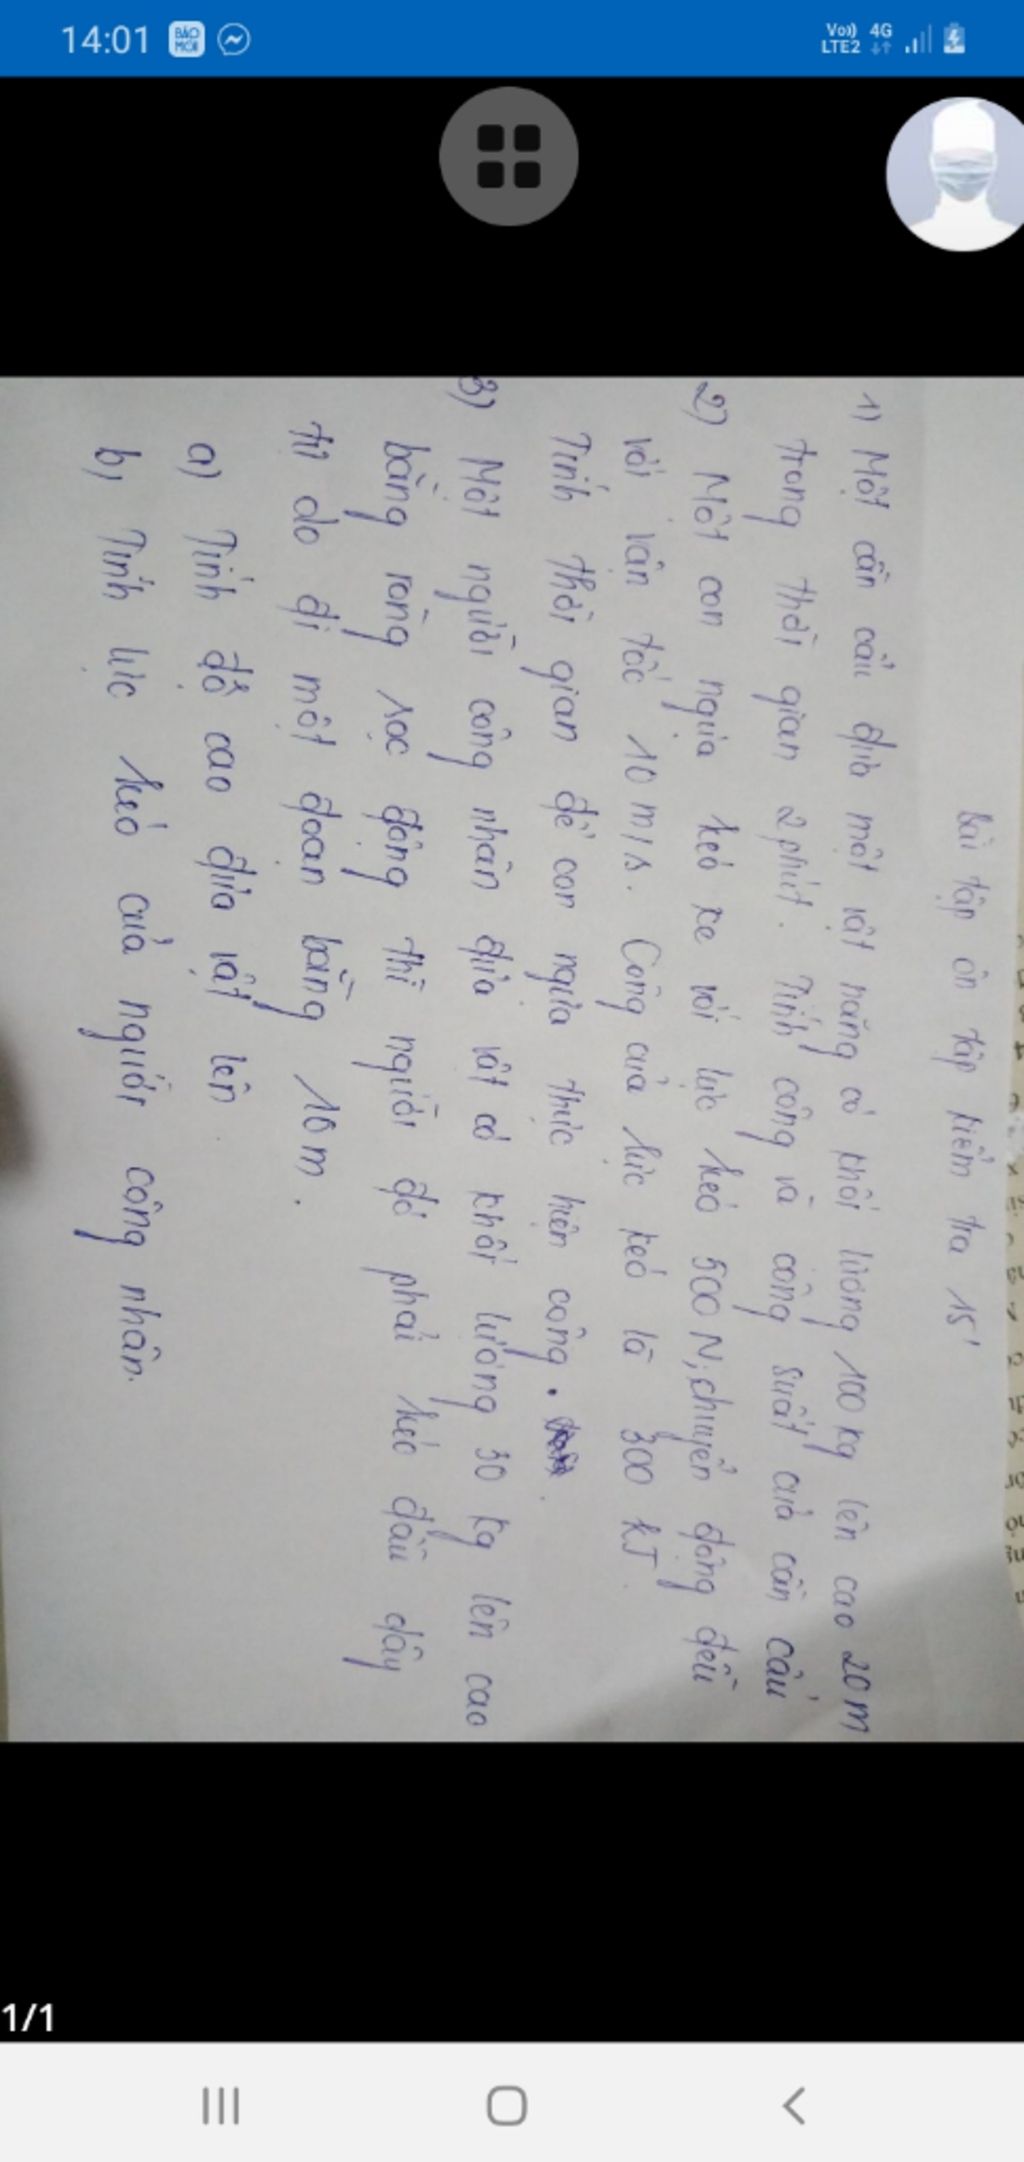 14:01
BÁO MỚI
Vo)) 4G
LTE2
Bài tập ôn tập kiểm tra 15'
1) Một cần cẩu đưa một vật nặng có khối lượng 100 kg lên cao 20 m
trong thời gian 2 phút. Tính công và công suất của cần cẩu
2) Một con ngựa kéo xe với lực kéo 500 N; chuyển động đều
với vận tốc 10 m/s. Công của lực kéo là 300 kJ.
Tính thời gian để con ngựa thực hiện công.
3) Một người công nhân đưa vật có khối lượng 30 kg lên cao
bằng ròng rọc động thì người đó phải kéo đầu dây
tự do đi một đoạn bằng 10 m.
a) Tính độ cao đưa vật lên
b) Tính lực kéo của người công nhân.
1/1